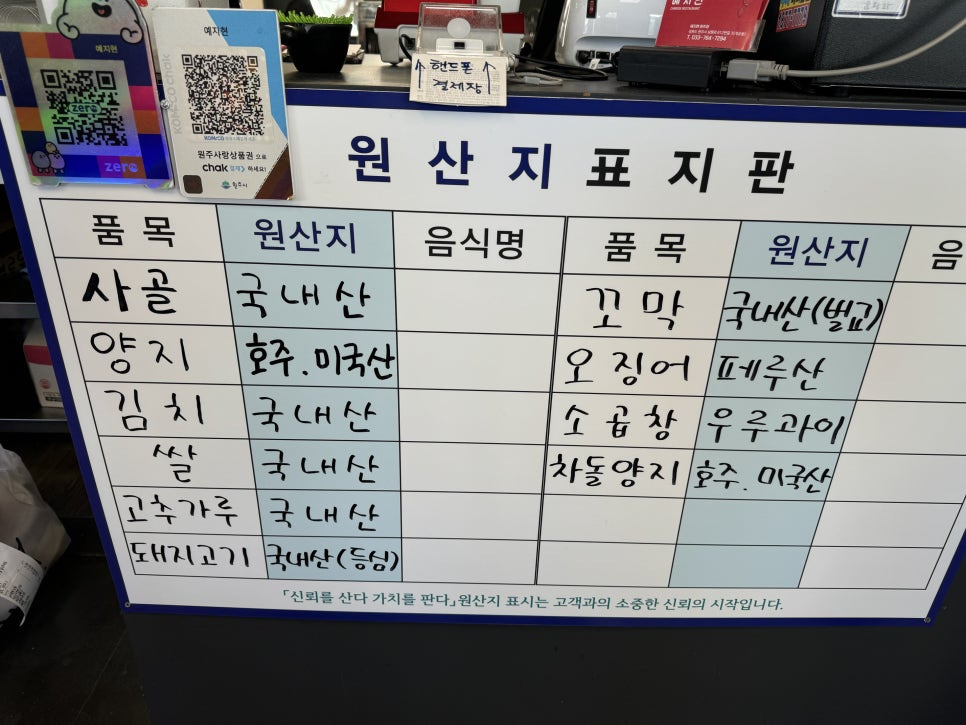 예지현
zero
zero
예지현
KOMSCO chak
KOMSCO
원주사랑상품권 으로
chak 결제 하세요!
원주시
핸드폰
결제장
T. 033-764-7294
원산지표지판
품목 원산지 음식명 품목 원산지 음
사골 국내산 꼬막 국내산(벌교)
양지 호주.미국산 오징어 페루산
김치 국내산 소곱창 우루과이
쌀 국내산 차돌양지 호주.미국산
고추가루 국내산
돼지고기 국내산(등심)
「신뢰를 산다 가치를 판다」원산지 표시는 고객과의 소중한 신뢰의 시작입니다.